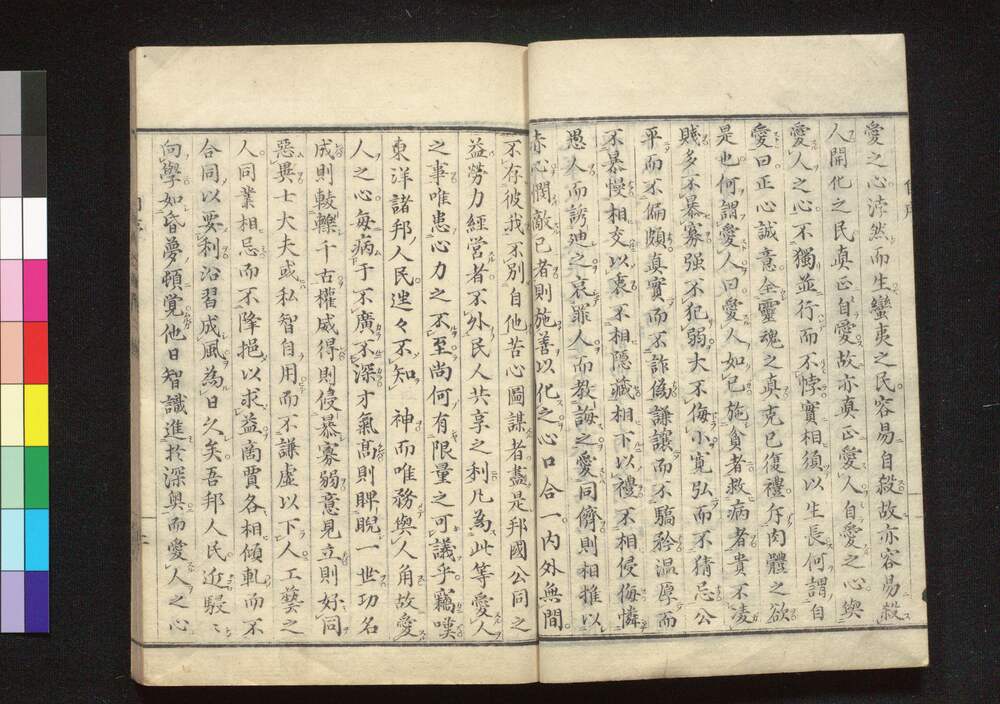 愛之心浡然而生蠻夷之民容易自殺故亦容易殺
人開化之民真正自愛故亦真正愛人自愛之心與
愛人之心不獨並行而不悖實相須以生長何謂自
愛曰正心誠意全靈魂之真克已復禮斥肉體之欲
是也何謂愛人曰愛人如已施貧者救病者貴不凌
賤多不暴寡强不犯弱大不侮小寬弘而不猜忌公
平而不偏頗真實而不詐偽謙讓而不驕矜温厚而
不暴慢相交以衷不相隱藏相下以禮不相侵侮憐
愚人而誘廸之哀罪人而教誨之愛同儕則相推以
赤心憫敵已者則施善以化之心口合一內外無間
不存彼我不別自他苦心圖謀者盡是邦國公同之
益勞力經營者不外民人共享之利凡為此等愛人
之事唯患心力之不至尚何有限量之可議乎竊嘆
東洋諸邦人民迷々不知　神而唯務與人角故愛
人之心每病于不廣不深才氣髙則睥睨一世功名
成則輘轢千古權威得則侵暴寡弱意見立則好同
惡異士大夫或私智自用而不謙虛以下人工藝之
人同業相忌而不降挹以求益商賈各相傾軋而不
合同以要利沿習成風為日久矣吾邦人民近駸々
向學如昏夢頓覺他日智識進於深奥而愛人之心